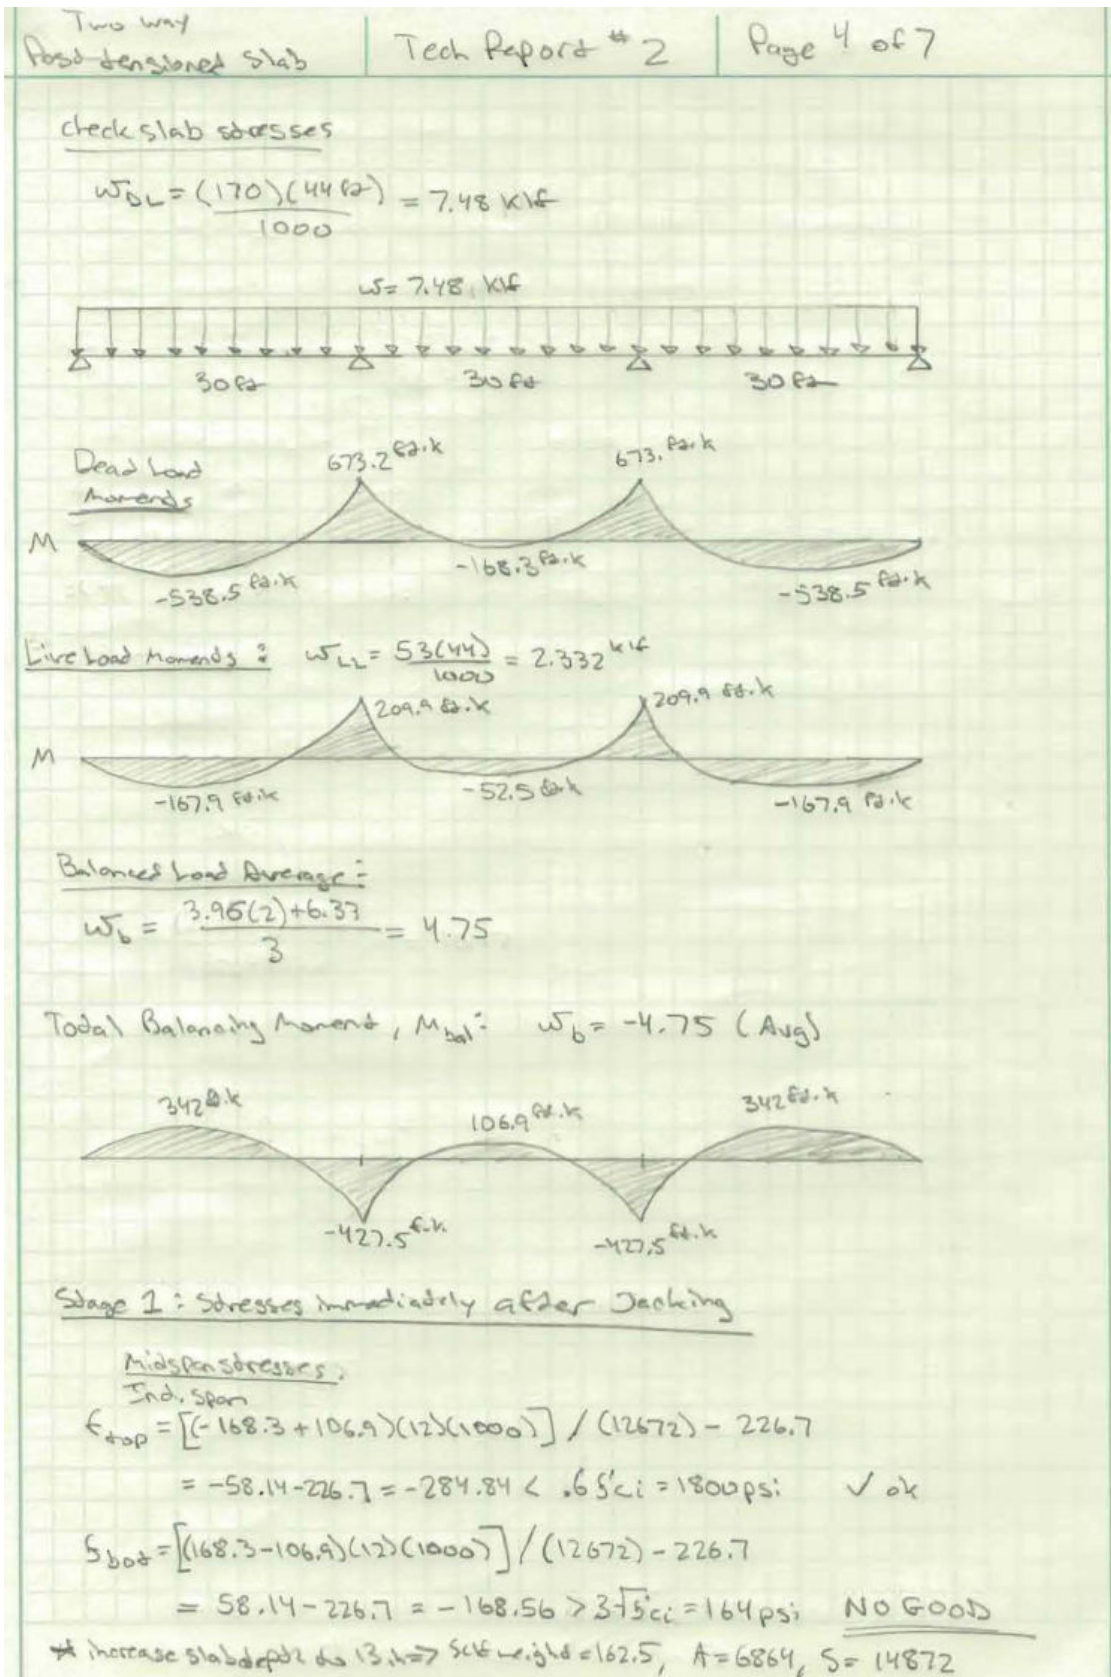 Two way
Post-tensioned Slab
Tech Report #2
Page 4 of 7
check slab stresses
w_DL = (170)(44 ft) / 1000 = 7.48 klf
w = 7.48 klf
30 ft 30 ft 30 ft
Dead Load
Moments
673.2 ft.k 673. ft.k
M
-538.5 ft.k -168.3 ft.k -538.5 ft.k
Live Load Moments: w_LL = 53(44) / 1000 = 2.332 klf
209.9 ft.k 209.9 ft.k
M
-167.9 ft.k -52.5 ft.k -167.9 ft.k
Balanced Load Average:
w_b = 3.96(2)+6.33 / 3 = 4.75
Total Balancing Moment, M_bal: w_b = -4.75 (Avg)
342 ft.k 106.9 ft.k 342 ft.k
-427.5 ft.k -427.5 ft.k
Stage 1: Stresses immediately after Jacking
Midspan stresses:
Int. Span
f_top = [(-168.3 + 106.9)(12)(1000)] / (12672) - 226.7
= -58.14 - 226.7 = -284.84 < .6 f'ci = 1800 psi ✓ ok
f_bot = [(168.3 - 106.9)(12)(1000)] / (12672) - 226.7
= 58.14 - 226.7 = -168.56 > 3√f'ci = 164 psi NO GOOD
* increase slab depth to 13 in => self weight = 162.5, A = 6864, S = 14872